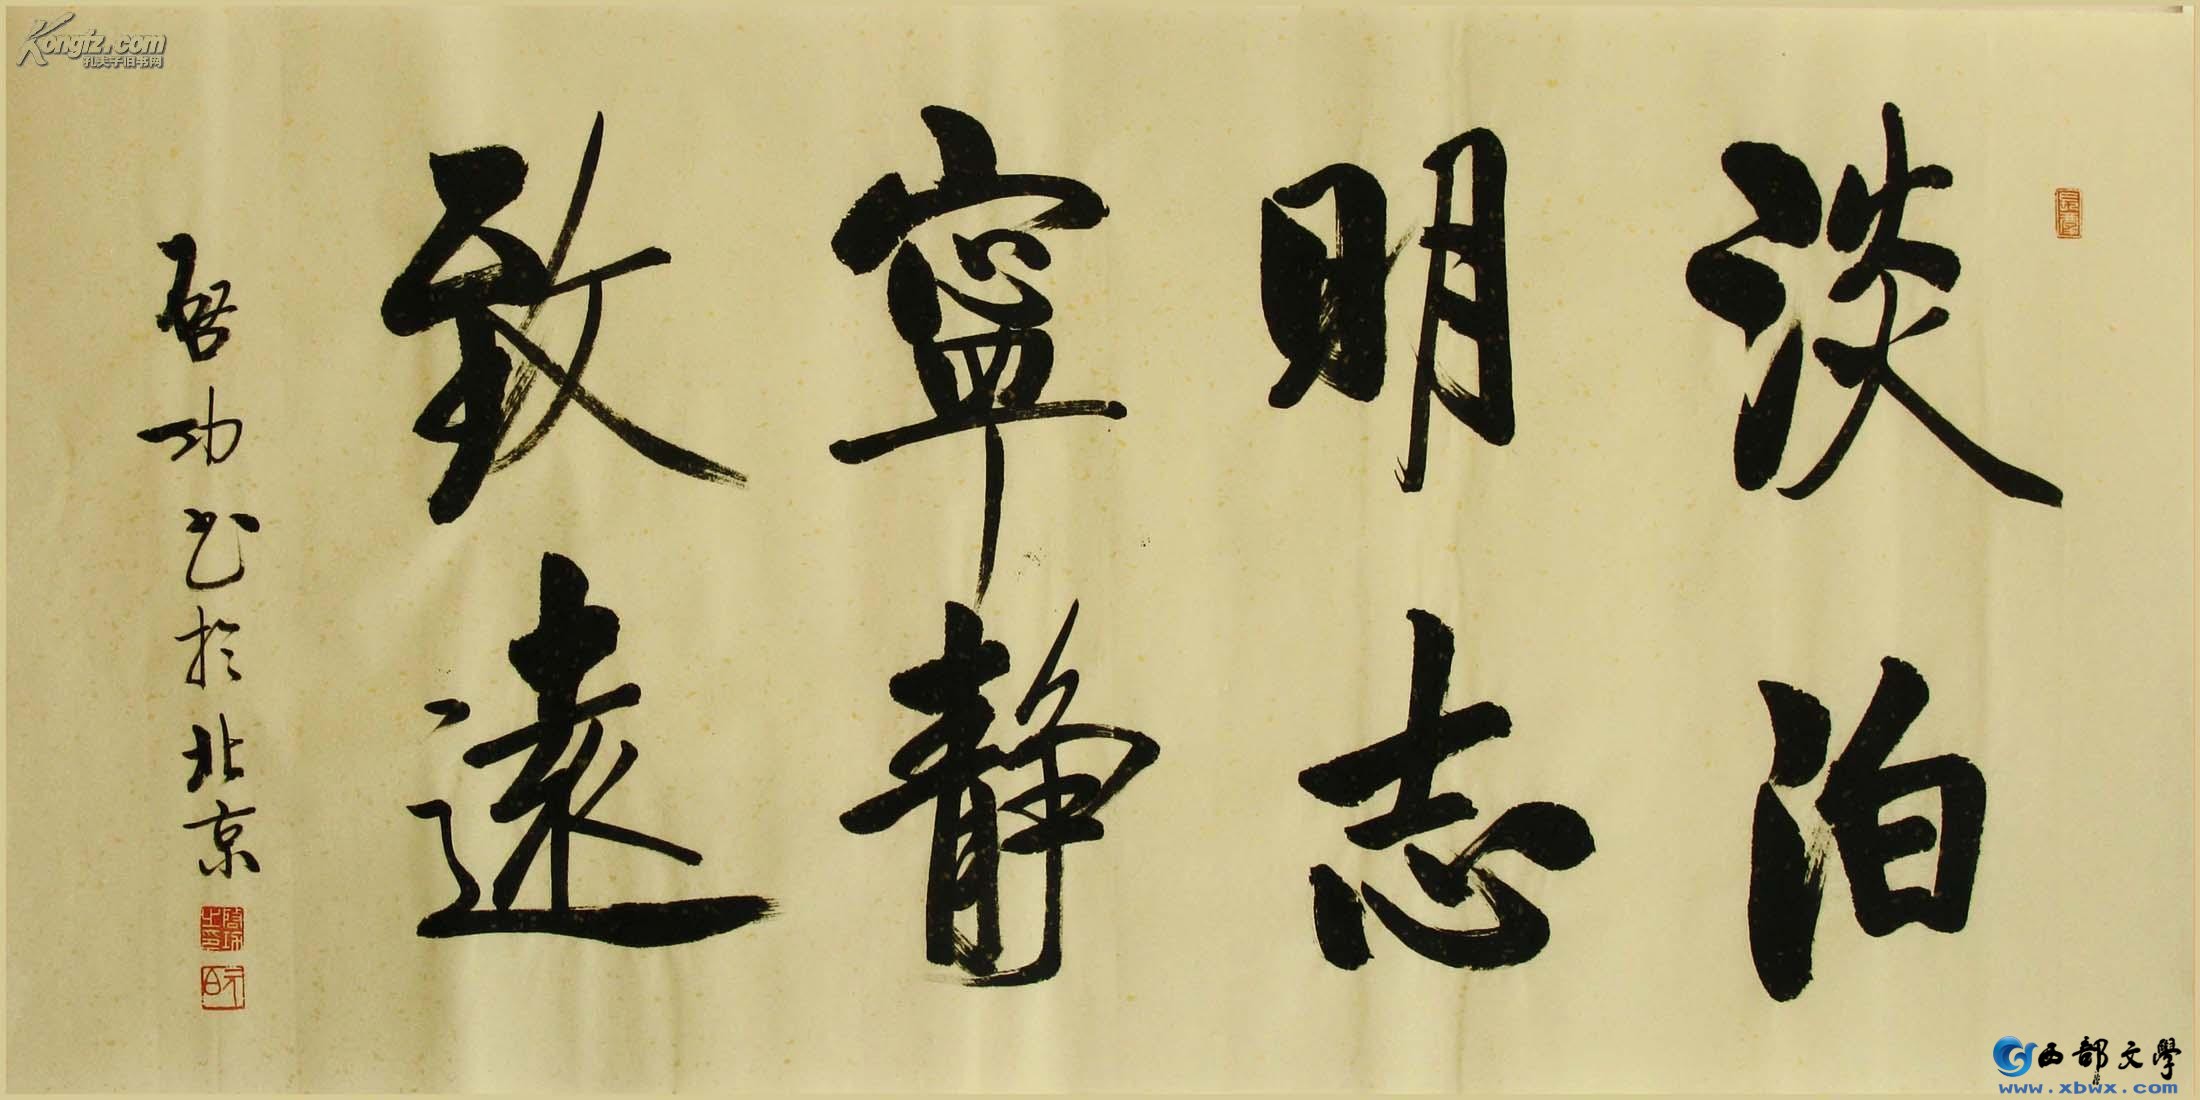 淡泊
明志
寧静
致遠
启功书於北京
启功之印
Kongfz.com
孔夫子旧书网
西部文學
www.xbwx.com